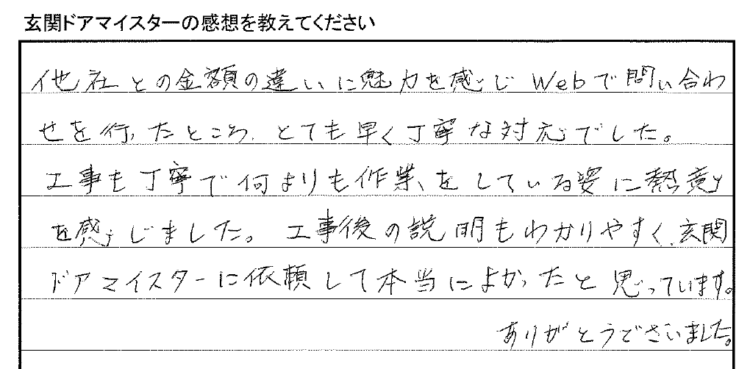 玄関ドアマイスターの感想を教えてください
他社との金額の違いに魅力を感じWebで問い合わ
せを行ったところ、とても早く丁寧な対応でした。
工事も丁寧で何よりも作業をしている姿に熱意
を感じました。工事後の説明もわかりやすく、玄関
ドアマイスターに依頼して本当によかったと思っています。
ありがとうございました。